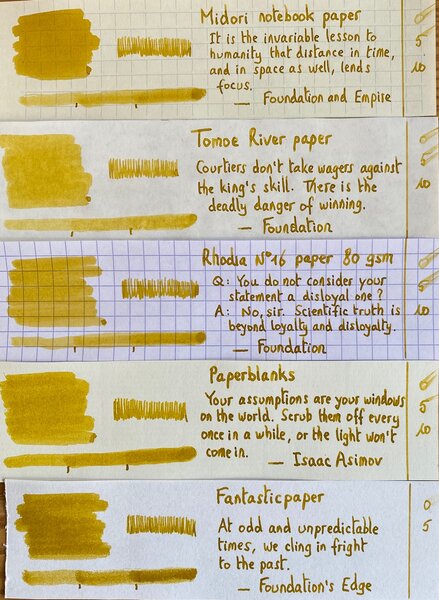 Midori notebook paper
It is the invariable lesson to
humanity that distance in time,
and in space as well, lends
focus.
— Foundation and Empire
0
5
10
Tomoe River paper
Courtiers don't take wagers against
the king's skill. There is the
deadly danger of winning.
— Foundation
0
5
10
Rhodia N°16 paper 80 gsm
Q: You do not consider your
statement a disloyal one?
A: No, sir. Scientific truth is
beyond loyalty and disloyalty.
— Foundation
0
5
10
Paperblanks
Your assumptions are your windows
on the world. Scrub them off every
once in a while, or the light won't
come in.
— Isaac Asimov
0
5
10
Fantasticpaper
At odd and unpredictable
times, we cling in fright
to the past.
— Foundation's Edge
0
5